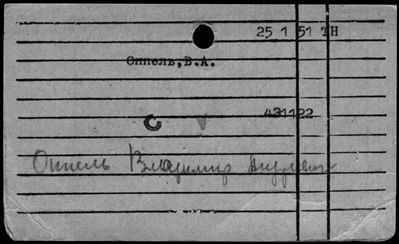 25 1 51 TH
Оппель,В.А.
431122
С
Оппель Владимир Андреевич